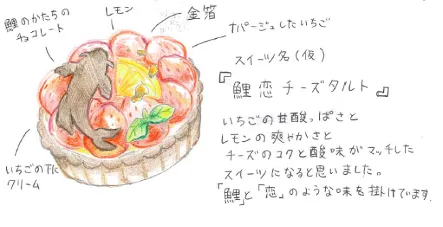 鯉のかたちの
チョコレート
レモン
金箔
ナパージュしたいちご
いちごの下に
クリーム
スイーツ名(仮)
『鯉恋チーズタルト』
いちごの甘酸っぱさと
レモンの爽やかさと
チーズのコクと酸味がマッチした
スイーツになると思いました。
「鯉」と「恋」のような味を掛けています。